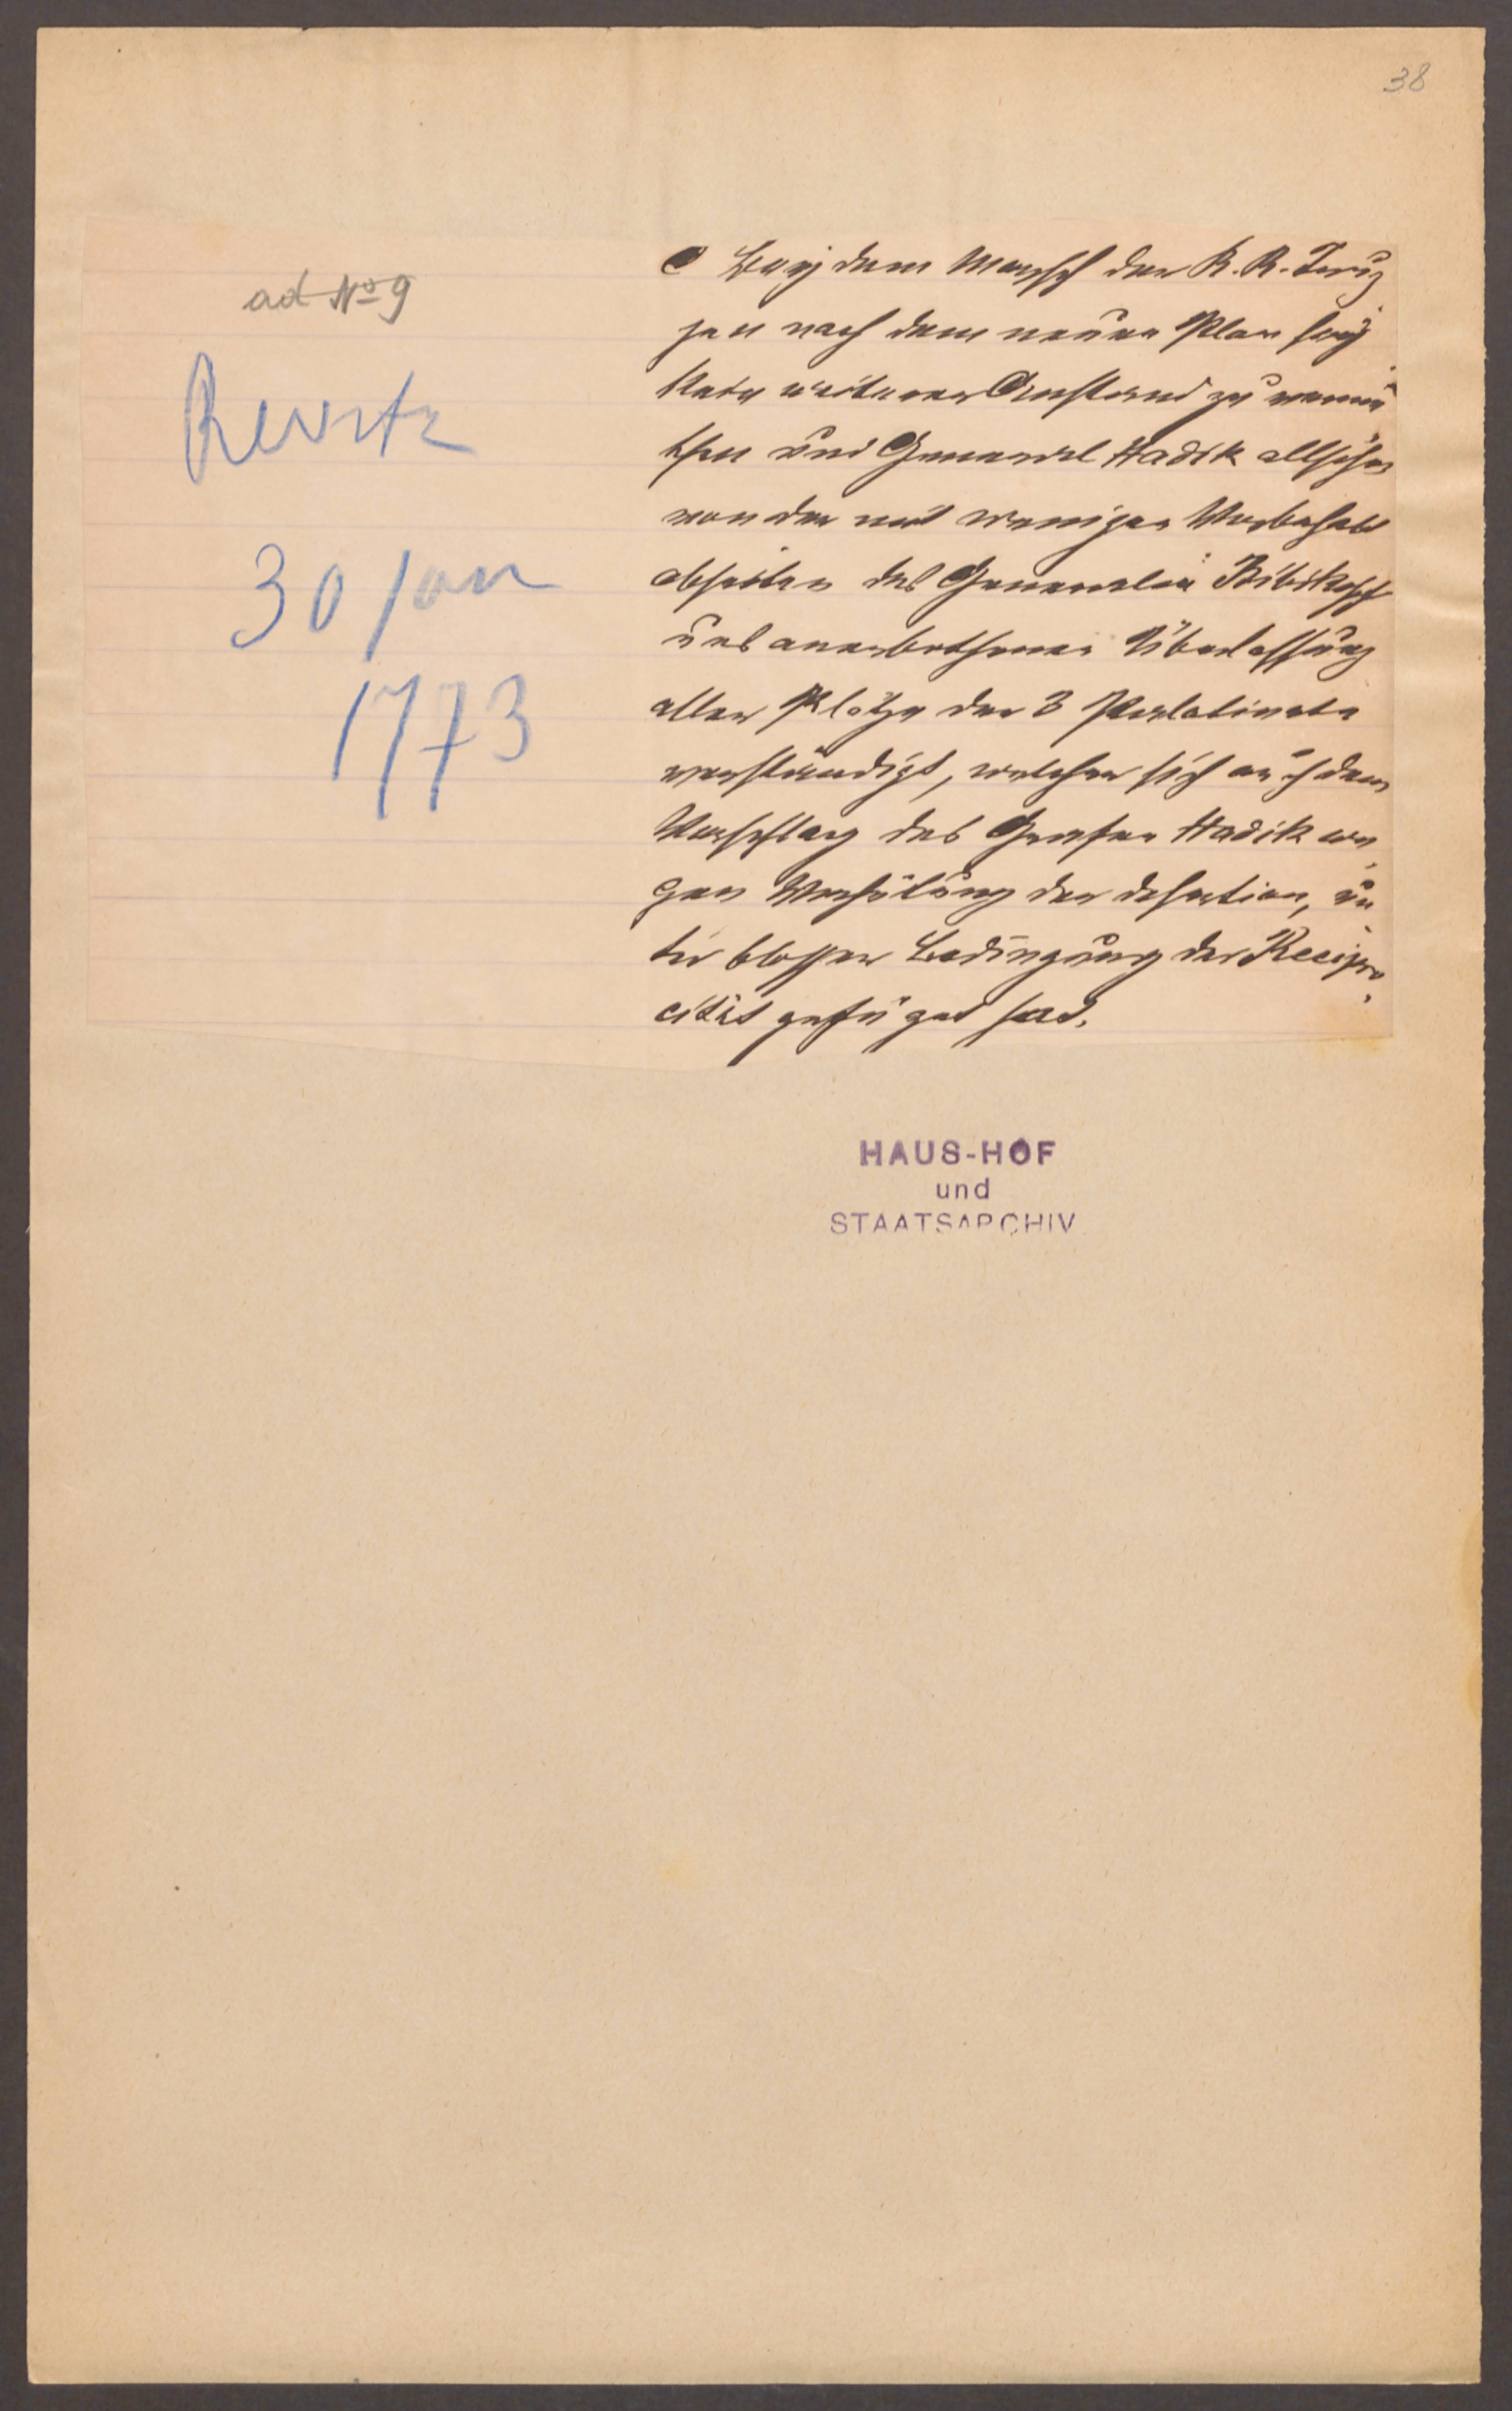 38
ad No 9
30 Jan
1773
Bey dem Marsch der K. K. Trup
pen nach dem neuen Plan sey
kein weiterer Anstand zu vermu
then und General Hadik allschon
von der mit weniger Vorbehalt
abseiten des Generalen Bibikoff
uns anerbothenen Überlassung
aller Plätze der 3 Palatinate
verständigt, welcher sich auch dem
Vorschlag des Grafen Hadik we
gen Verhütung der desertion, un
ter blossen Bedingung der Recipro
cität gefüget hat.
HAUS-HOF
und
STAATSARCHIV